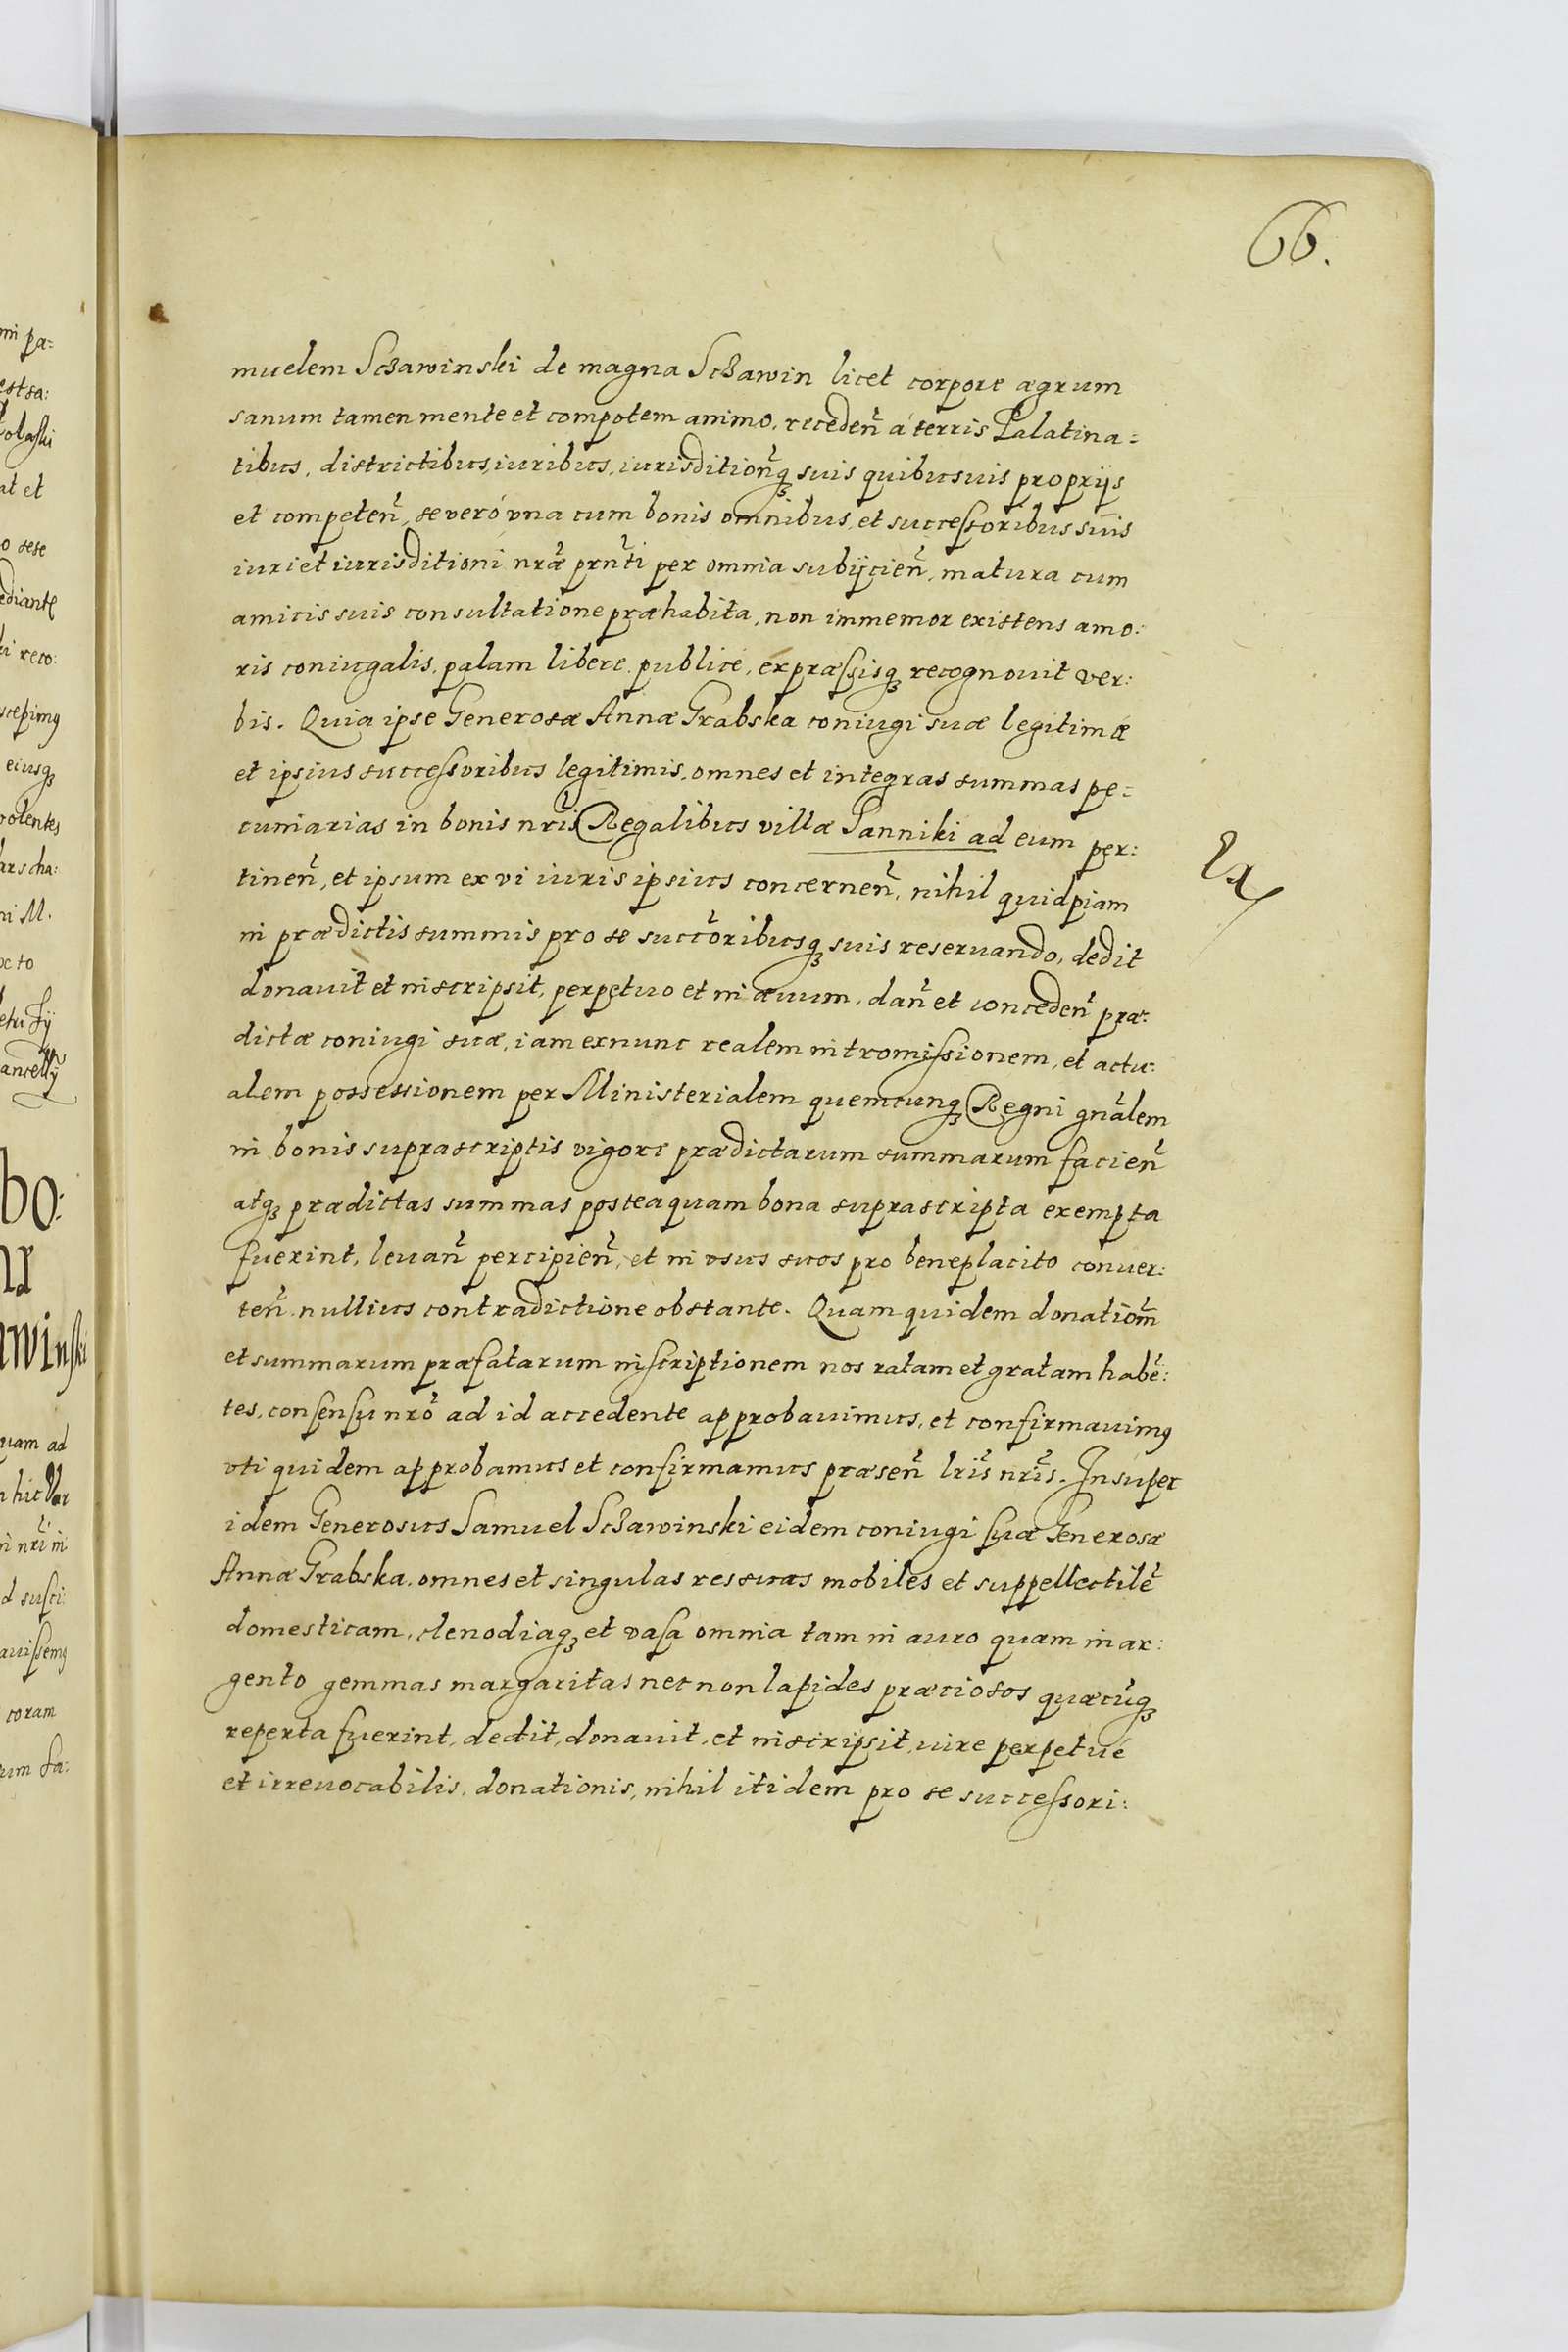 66.
muelem Sczawinski de magna Sczawin licet corpore ægrum
sanum tamen mente et compotem animo, receden̄ á terris Palatina=
tibus, districtibus, iuribus, iurisdition̄qꝫ suis quibusuis proprijs
et competen̄, se veró vna cum bonis omnibus, et successoribus suis
iuri et iurisditioni nr̄æ prn̄ti per omnia subijcien̄, matura cum
amicis suis consultatione præhabita, non immemor existens amo:
ris coniugalis, palam libere publicé, expræssisqꝫ recognouit ver:
bis. Quia ipse Generosæ Annæ Grabska coniugi suæ legitimæ
et ipsius successoribus legitimis, omnes et integras summas pe=
cuniarias in bonis nr̄is Regalibus villæ Panniki ad eum per:
tinen̄, et ipsum ex vi iuris ipsius concernen̄, nihil quidpiam
in prædictis summis pro se succ̄oribusqꝫ suis reseruando, dedit
donauit et inscripsit, perpetuo et in æuum, dan̄ et conceden̄ præ:
dictæ coniugi suæ, iam exnunc realem intromissionem, et actu:
alem possessionem per Ministerialem quemcunqꝫ Regni gnālem
in bonis suprascriptis vigore prædictarum summarum facien̄
atqꝫ prædictas summas posteaquam bona suprascripta exempta
fuerint, leuan̄ percipien̄, et in vsus suos pro beneplacito conuer:
ten̄ nullius contradictione obstante. Quam quidem donatiōm
et summarum præfatarum inscriptionem nos ratam et gratam habē:
tes, consensu nrō ad id accedente approbauimus, et confirmauimꝰ
vti quidem approbamus et confirmamus præsen̄ lr̄is nr̄is. Insuper
idem Generosus Samuel Sczawinski eidem coniugi suæ Generosæ
Annæ Grabska, omnes et singulas res suas mobiles et suppellectilē
domesticam, clenodiaqꝫ et vasa omnia tam in auro quam in ar:
gento gemmas margaritas nec non lapides præciosos quæcūqꝫ
reperta fuerint, dedit, donauit, et inscripsit, iure perpetuæ
et irreuocabilis, donationis, nihil itidem pro se successori: